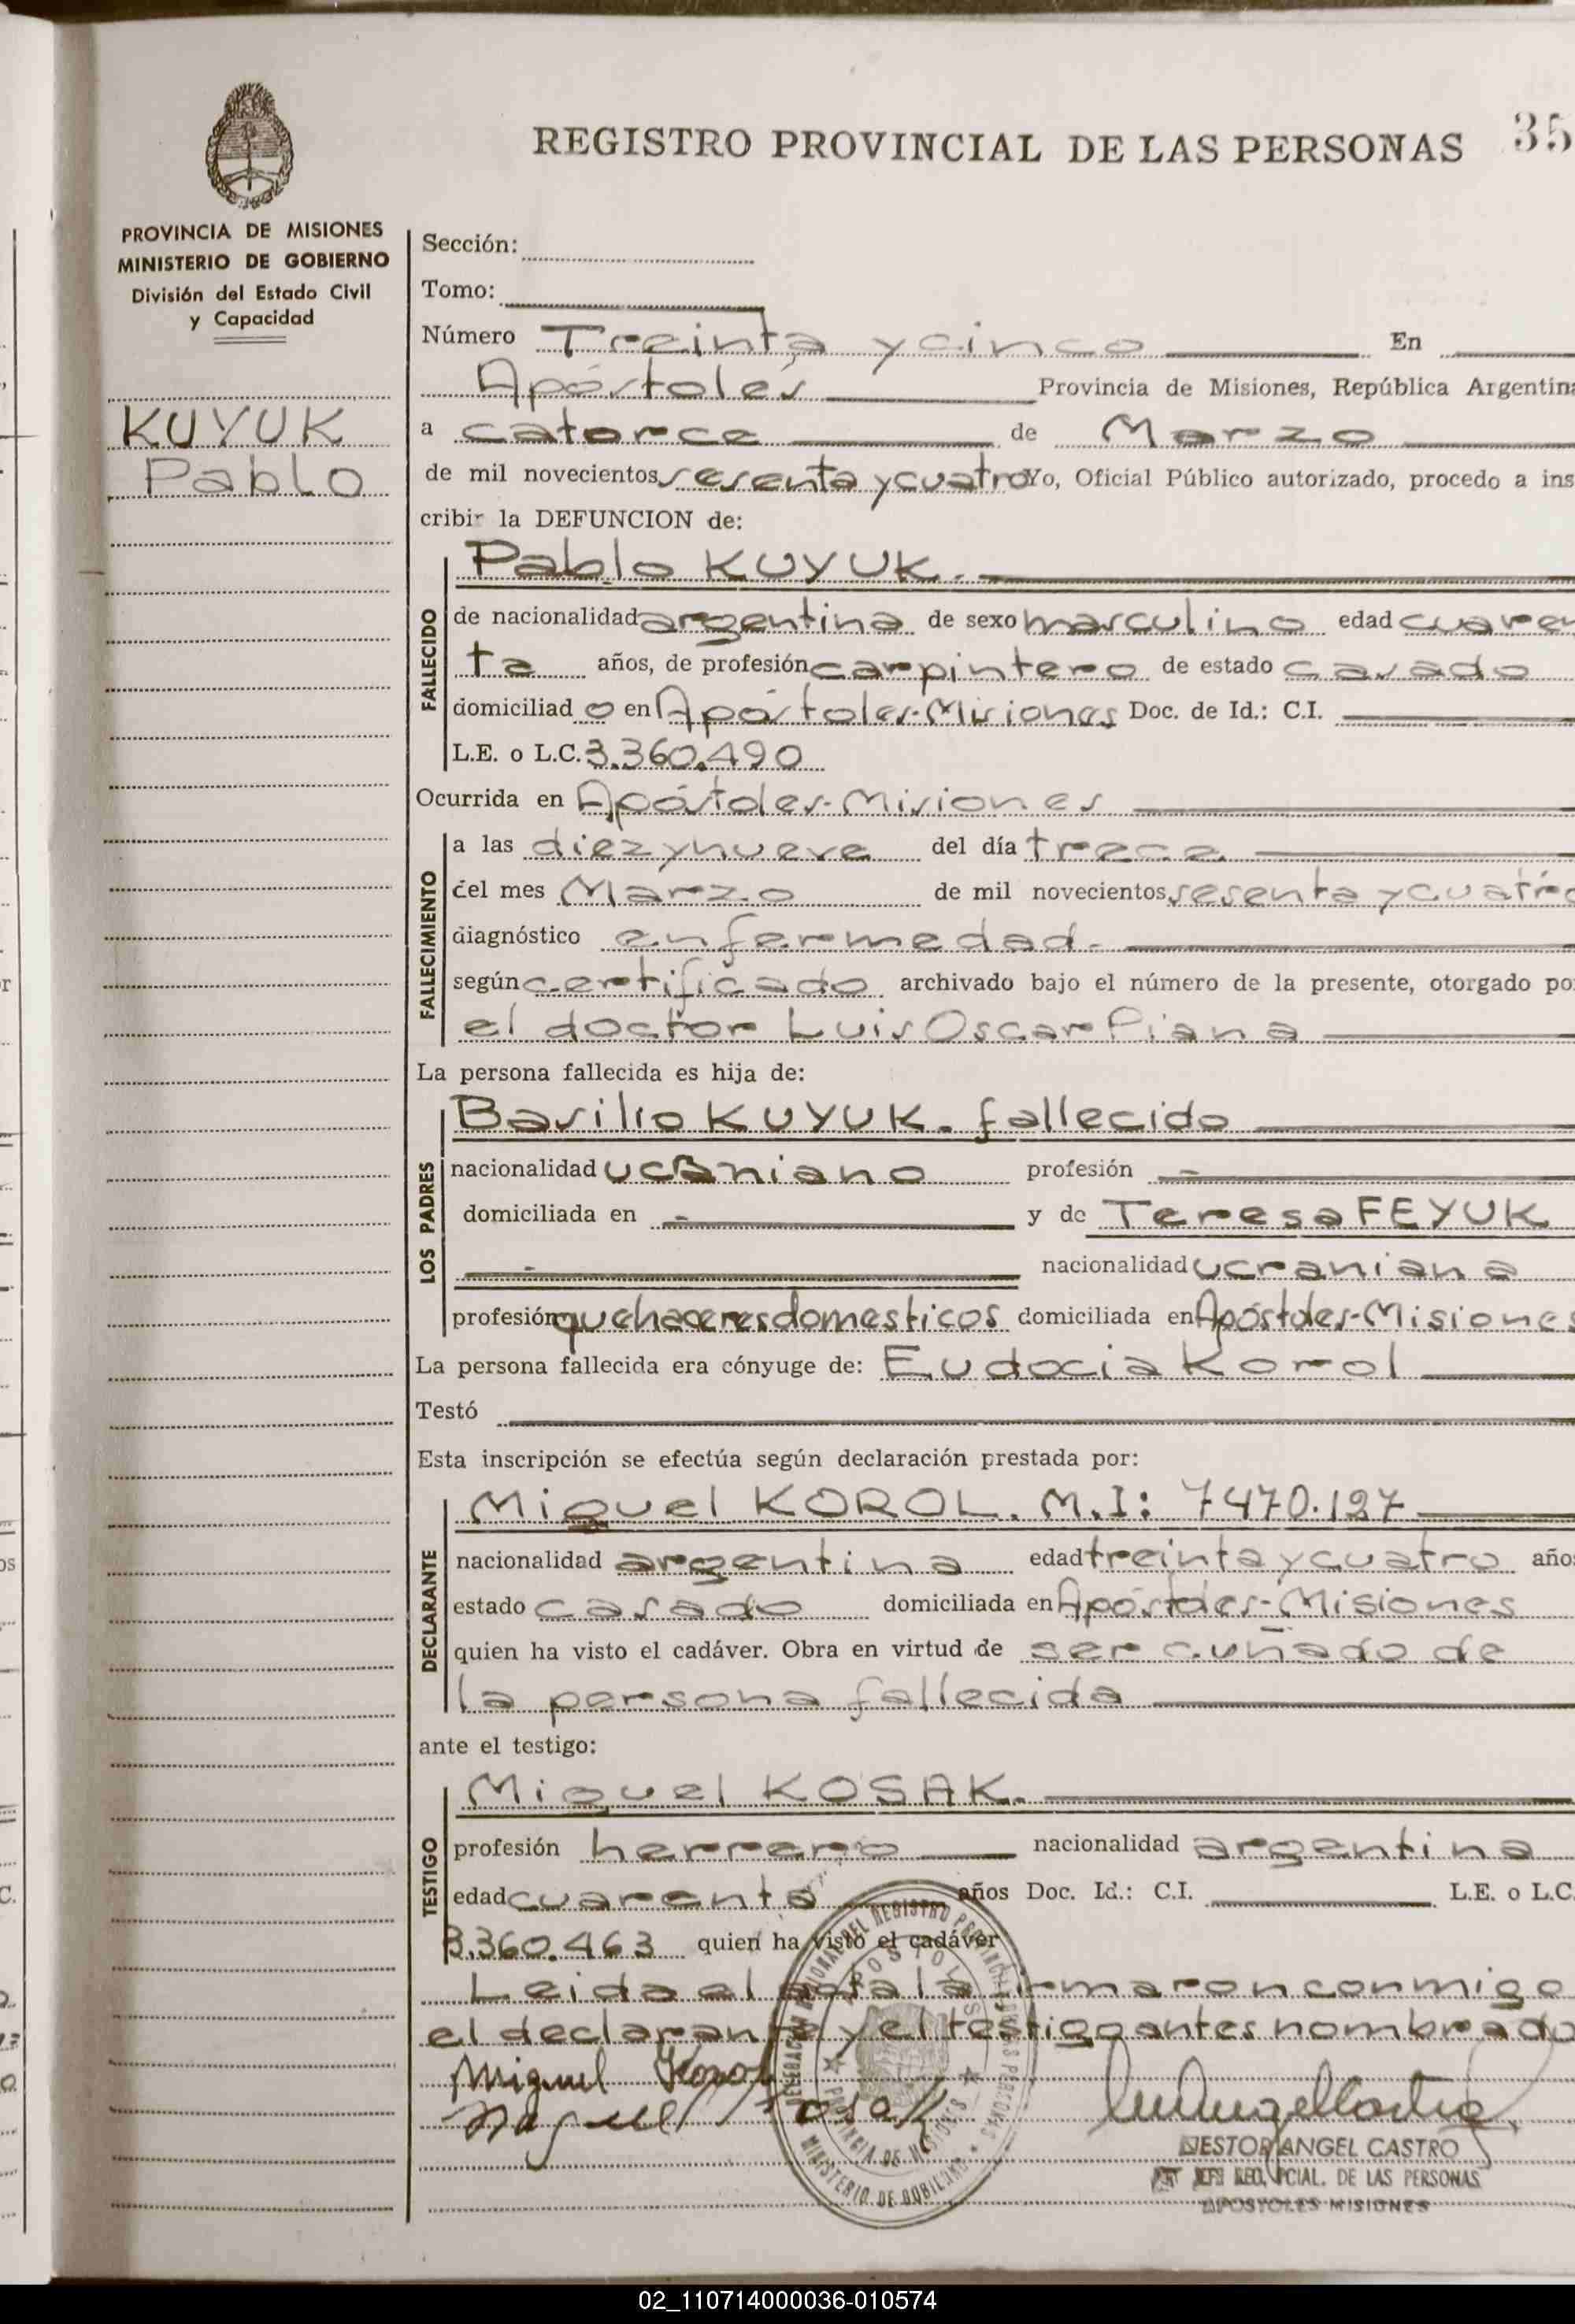 REGISTRO PROVINCIAL DE LAS PERSONAS 35
PROVINCIA DE MISIONES
MINISTERIO DE GOBIERNO
División del Estado Civil
y Capacidad
KUYUK
Pablo
Sección:
Tomo:
Número Treinta y cinco En
Apóstoles Provincia de Misiones, República Argentina
a catorce de Marzo
de mil novecientos sesenta y cuatro Yo, Oficial Público autorizado, procedo a ins
cribir la DEFUNCION de:
FALLECIDO
Pablo KUYUK.
de nacionalidad argentina de sexo masculino edad cuaren
ta años, de profesión carpintero de estado casado
domiciliad o en Apóstoles-Misiones Doc. de Id.: C.I.
L.E. o L.C. 3.360.490
Ocurrida en Apóstoles-Misiones
FALLECIMIENTO
a las diez y nueve del día trece
del mes Marzo de mil novecientos sesenta y cuatro
diagnóstico enfermedad.
según certificado archivado bajo el número de la presente, otorgado po
el doctor Luis Oscar Piana
La persona fallecida es hija de:
LOS PADRES
Basilio KUYUK. fallecido
nacionalidad ucraniano profesión -
domiciliada en - y de Teresa FEYUK
- nacionalidad ucraniana
profesión quehaceres domesticos domiciliada en Apóstoles-Misiones
La persona fallecida era cónyuge de: Eudocia Korol
Testó
Esta inscripción se efectúa según declaración prestada por:
DECLARANTE
Miguel KOROL. M.I: 7470.127
nacionalidad argentina edad treinta y cuatro año
estado casado domiciliada en Apóstoles-Misiones
quien ha visto el cadáver. Obra en virtud de ser cuñado de
la persona fallecida
ante el testigo:
TESTIGO
Miguel KOSAK.
profesión herrero nacionalidad argentina
edad cuarenta años Doc. Id.: C.I. L.E. o L.C.
3.360.463 quien ha visto el cadáver
Leida el acta la firmaron conmigo
el declarante y el testigo antes nombrado
Miguel Korol
Miguel Kosak
NESTOR ANGEL CASTRO
REG. PCIAL. DE LAS PERSONAS
APOSTOLES MISIONES
DELEGACION REGIONAL DEL REGISTRO PROVINCIAL DE LAS PERSONAS
APOSTOLES
PROVINCIA DE MISIONES
MINISTERIO DE GOBIERNO
02_110714000036-010574